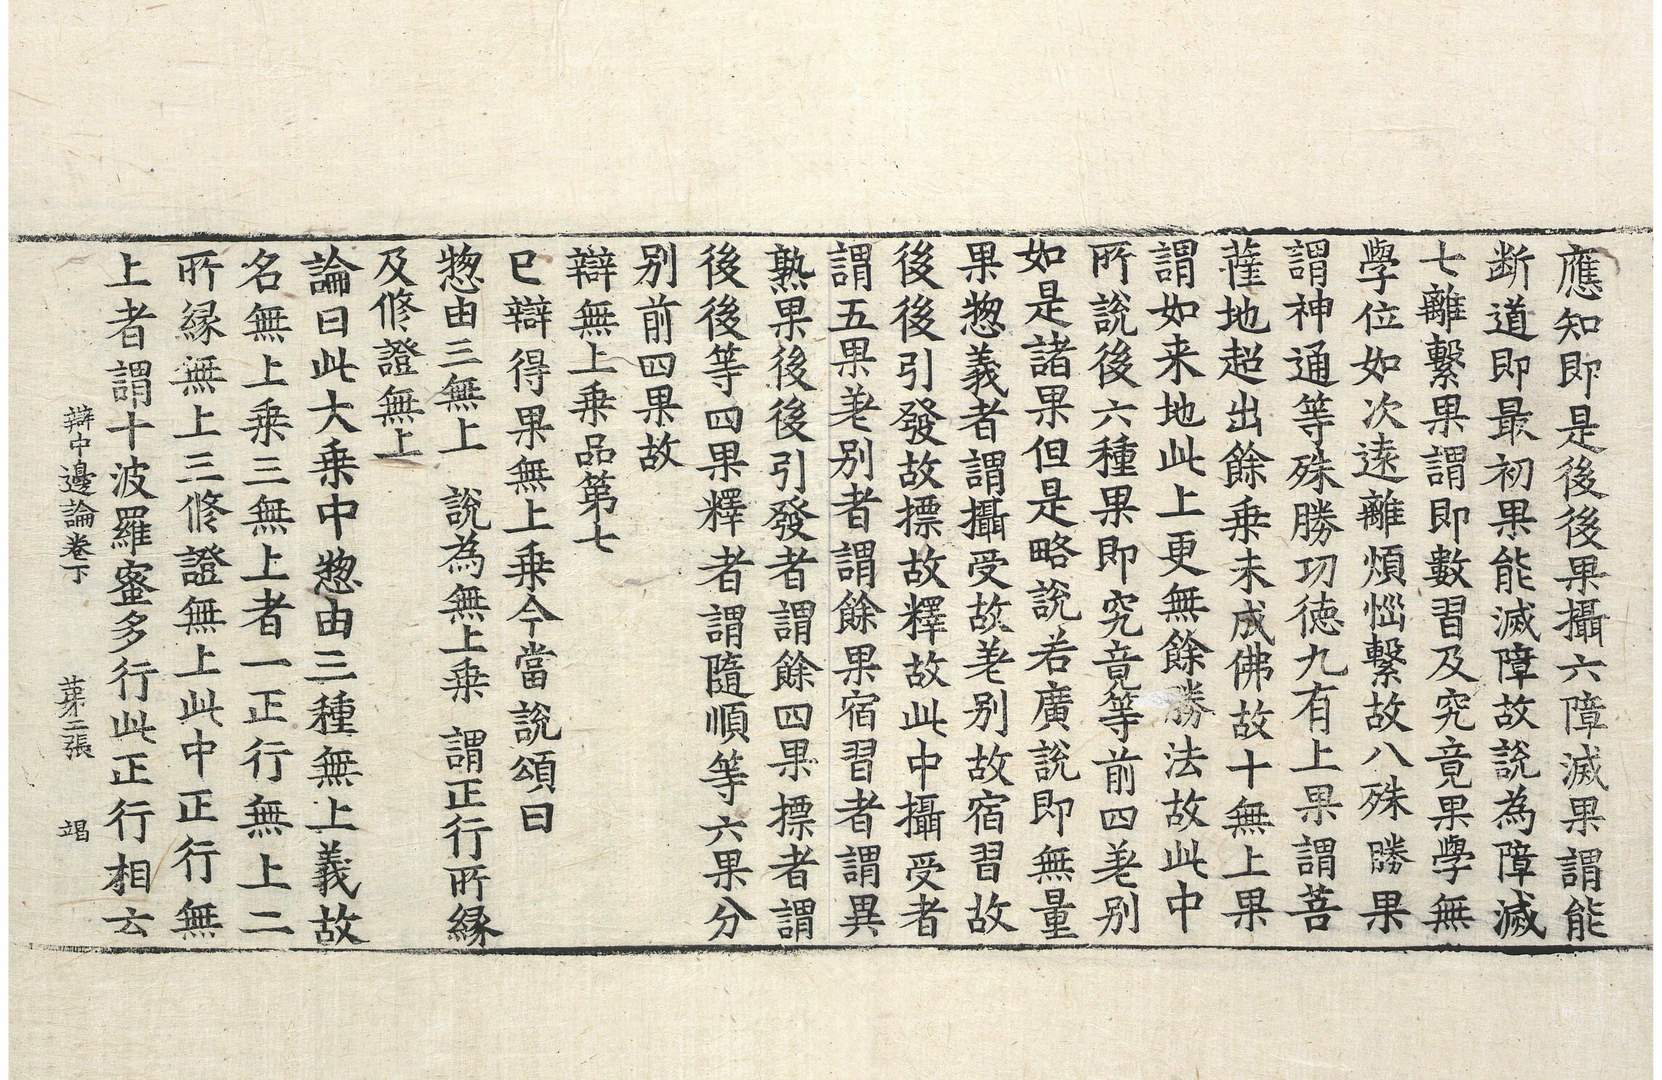 應知即是後後果攝六障滅果謂能
断道即最初果能滅障故說為障滅
七離繫果謂即數習及究竟果學無
學位如次遠離煩惱繫故八殊勝果
謂神通等殊勝功德九有上果謂菩
薩地超出餘乗未成佛故十無上果
謂如来地此上更無餘勝法故此中
所說後六種果即究竟等前四差别
如是諸果但是略說若廣說即無量
果惣義者謂攝受故差别故宿習故
後後引發故摽故釋故此中攝受者
謂五果差别者謂餘果宿習者謂異
熟果後後引發者謂餘四果摽者謂
後後等四果釋者謂隨順等六果分
别前四果故
辯無上乗品第七
已辯得果無上乗今當說頌曰
惣由三無上　說為無上乗　謂正行所縁
及修證無上
論曰此大乗中惣由三種無上義故
名無上乗三無上者一正行無上二
所縁無上三修證無上此中正行無
上者謂十波羅蜜多行此正行相云
辯中邊論卷下　苐二張　竭